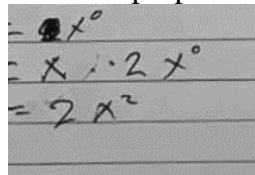 = x⁰
= x · 2 x⁰
= 2 x²